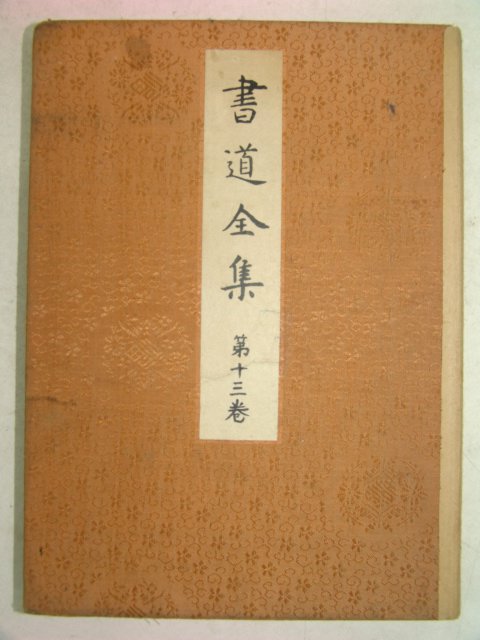 書道全集
第十三卷